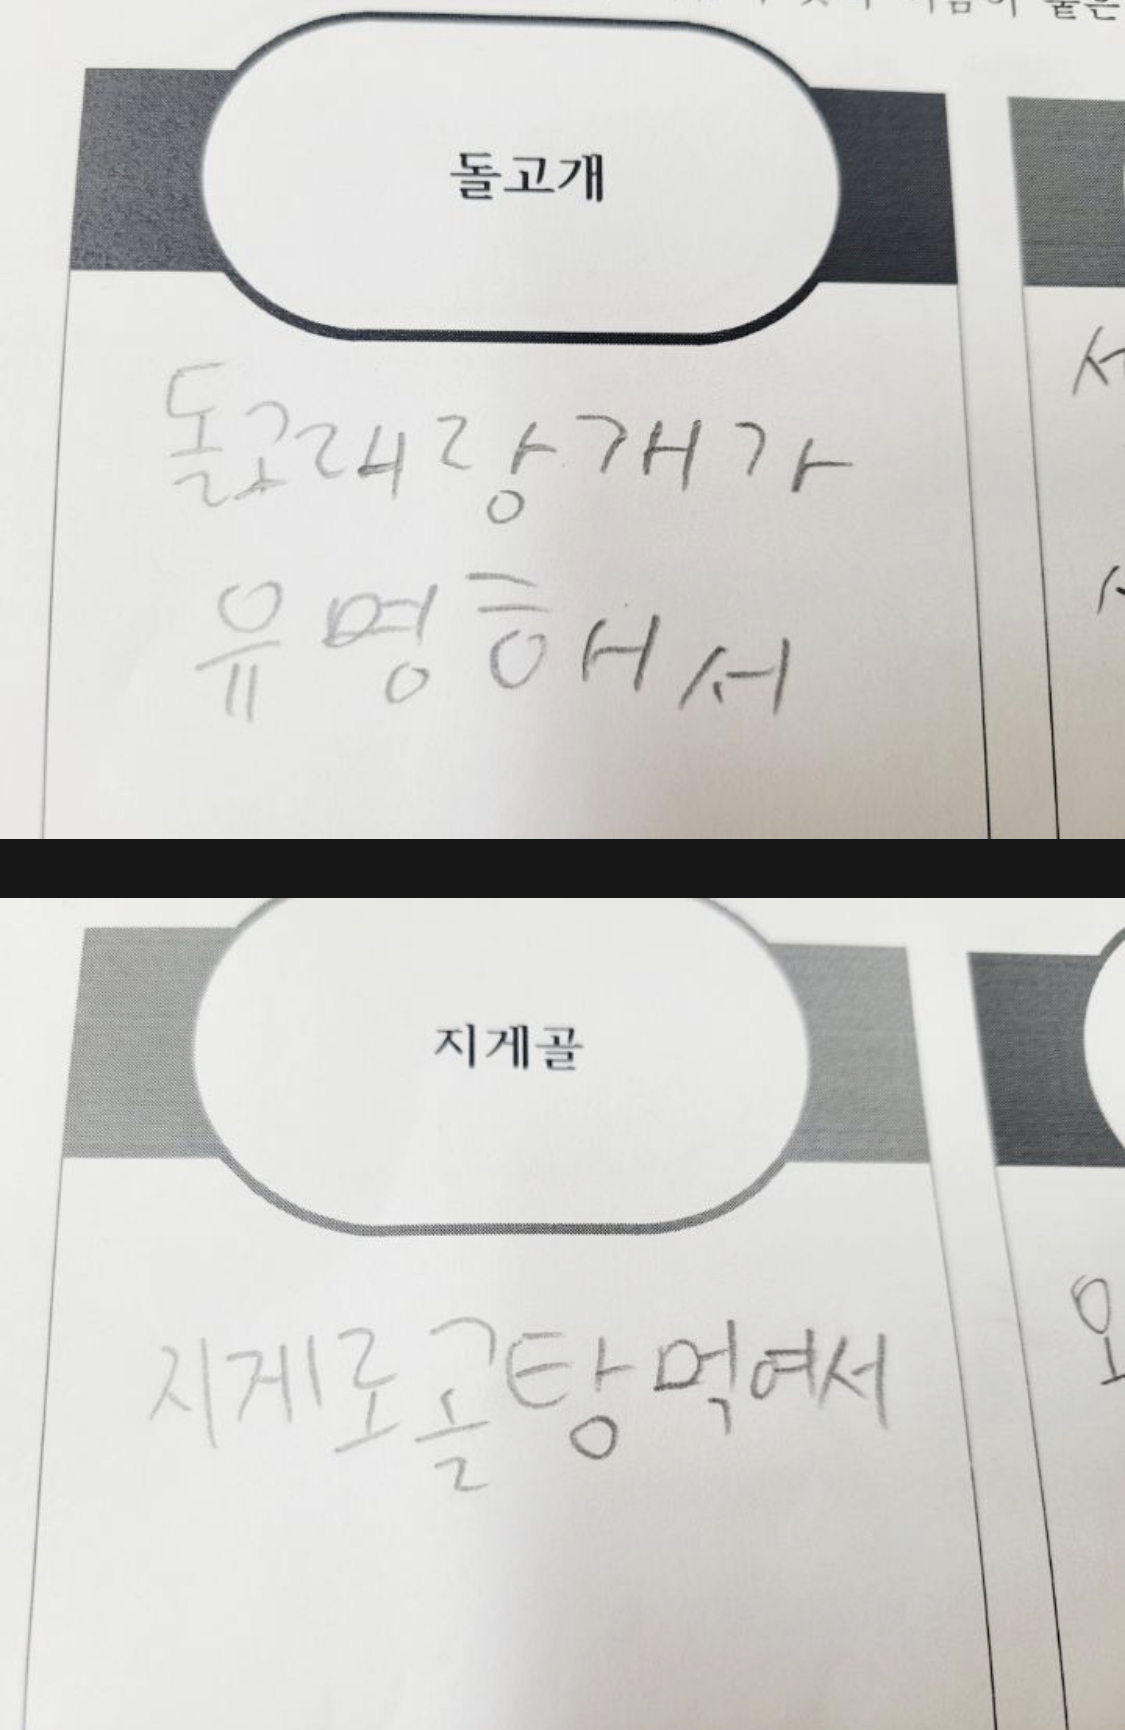 돌고개
돌고래랑개가
유명해서
지게골
지게로골탕먹여서